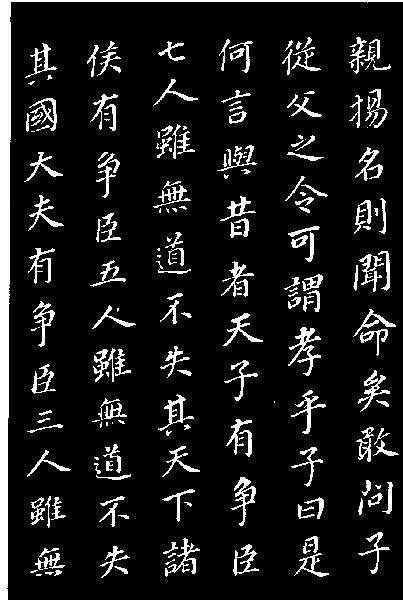 親揚名則聞命矣敢问子
從父之令可謂孝乎子曰是
何言與昔者天子有争臣
七人雖無道不失其天下諸
侯有争臣五人雖無道不失
其國大夫有争臣三人雖無